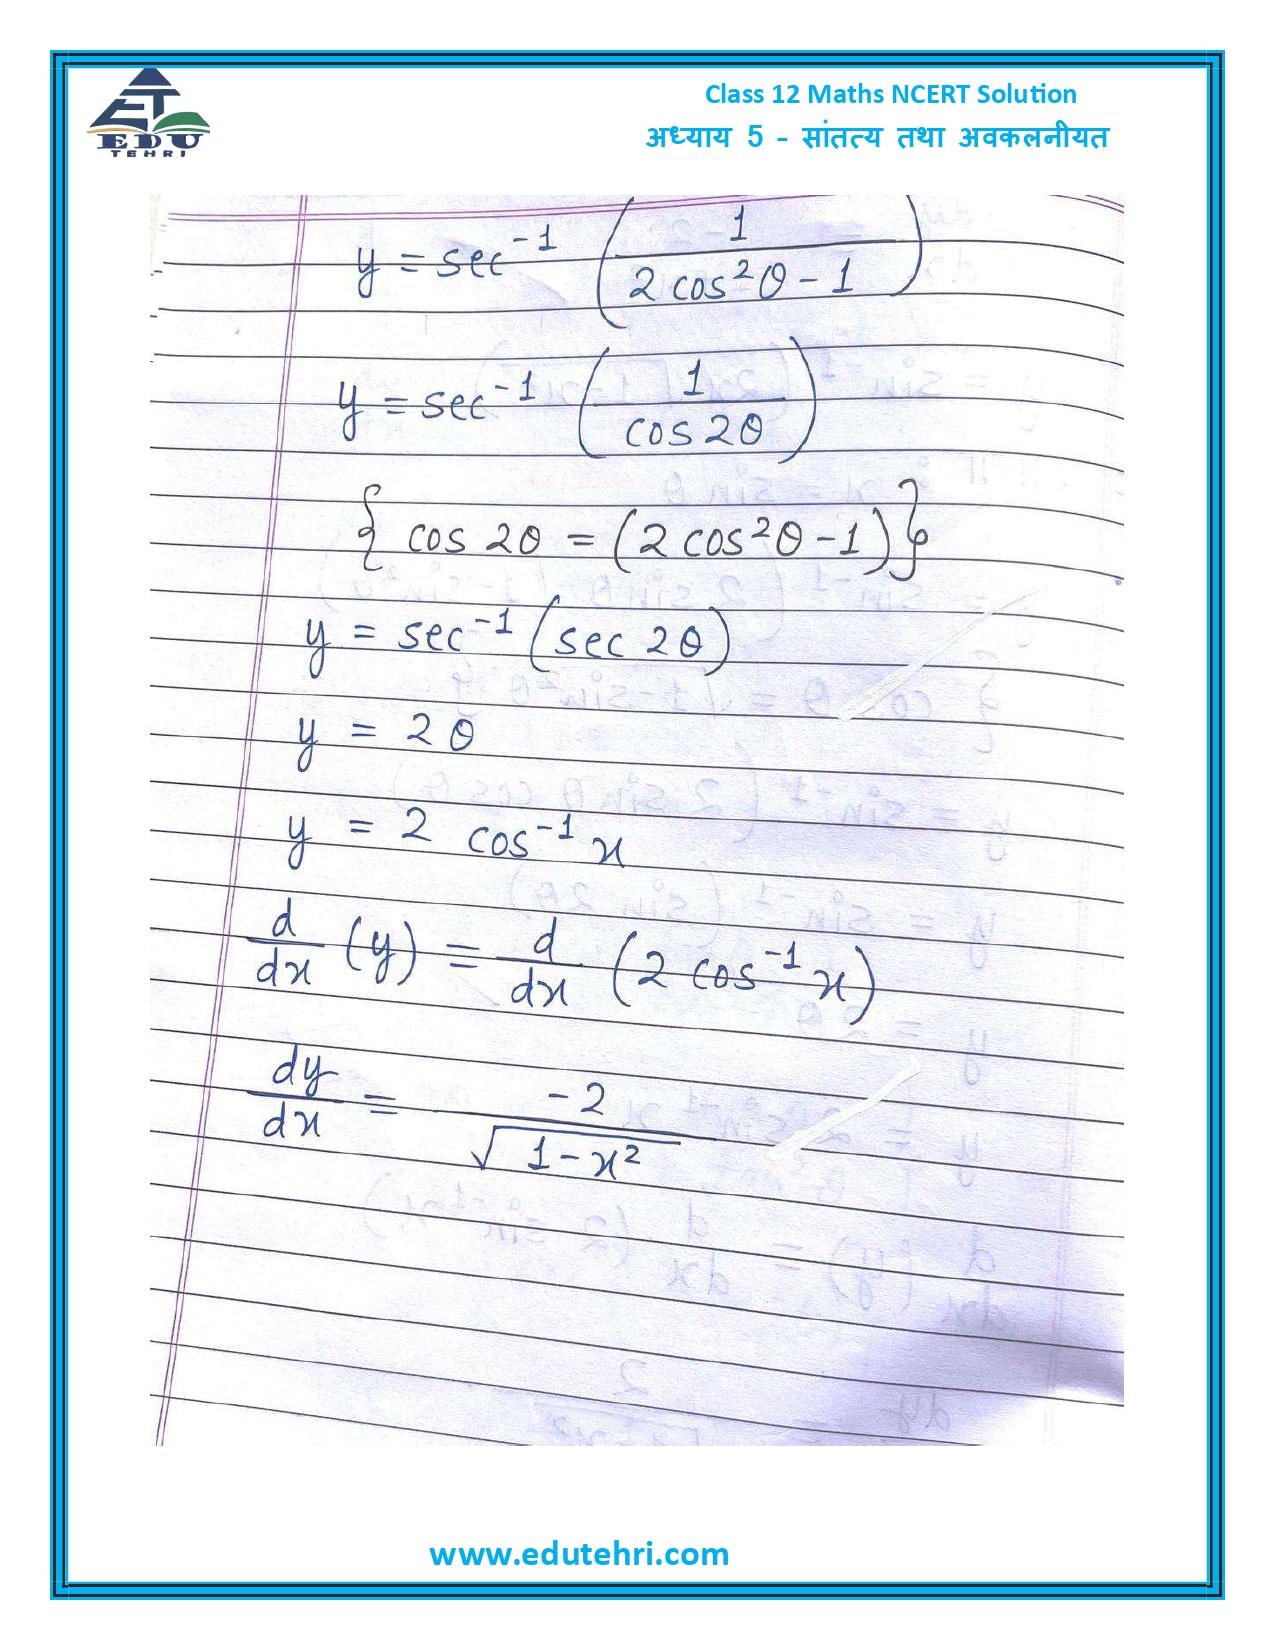 EDU
TEHRI
Class 12 Maths NCERT Solution
अध्याय 5 - सांतत्य तथा अवकलनीयत
y = sec⁻¹ (1 / (2 cos²θ - 1))
y = sec⁻¹ (1 / cos 2θ)
{ cos 2θ = (2 cos²θ - 1) }
y = sec⁻¹ (sec 2θ)
y = 2θ
y = 2 cos⁻¹ x
d/dx (y) = d/dx (2 cos⁻¹ x)
dy/dx = -2 / √(1 - x²)
www.edutehri.com